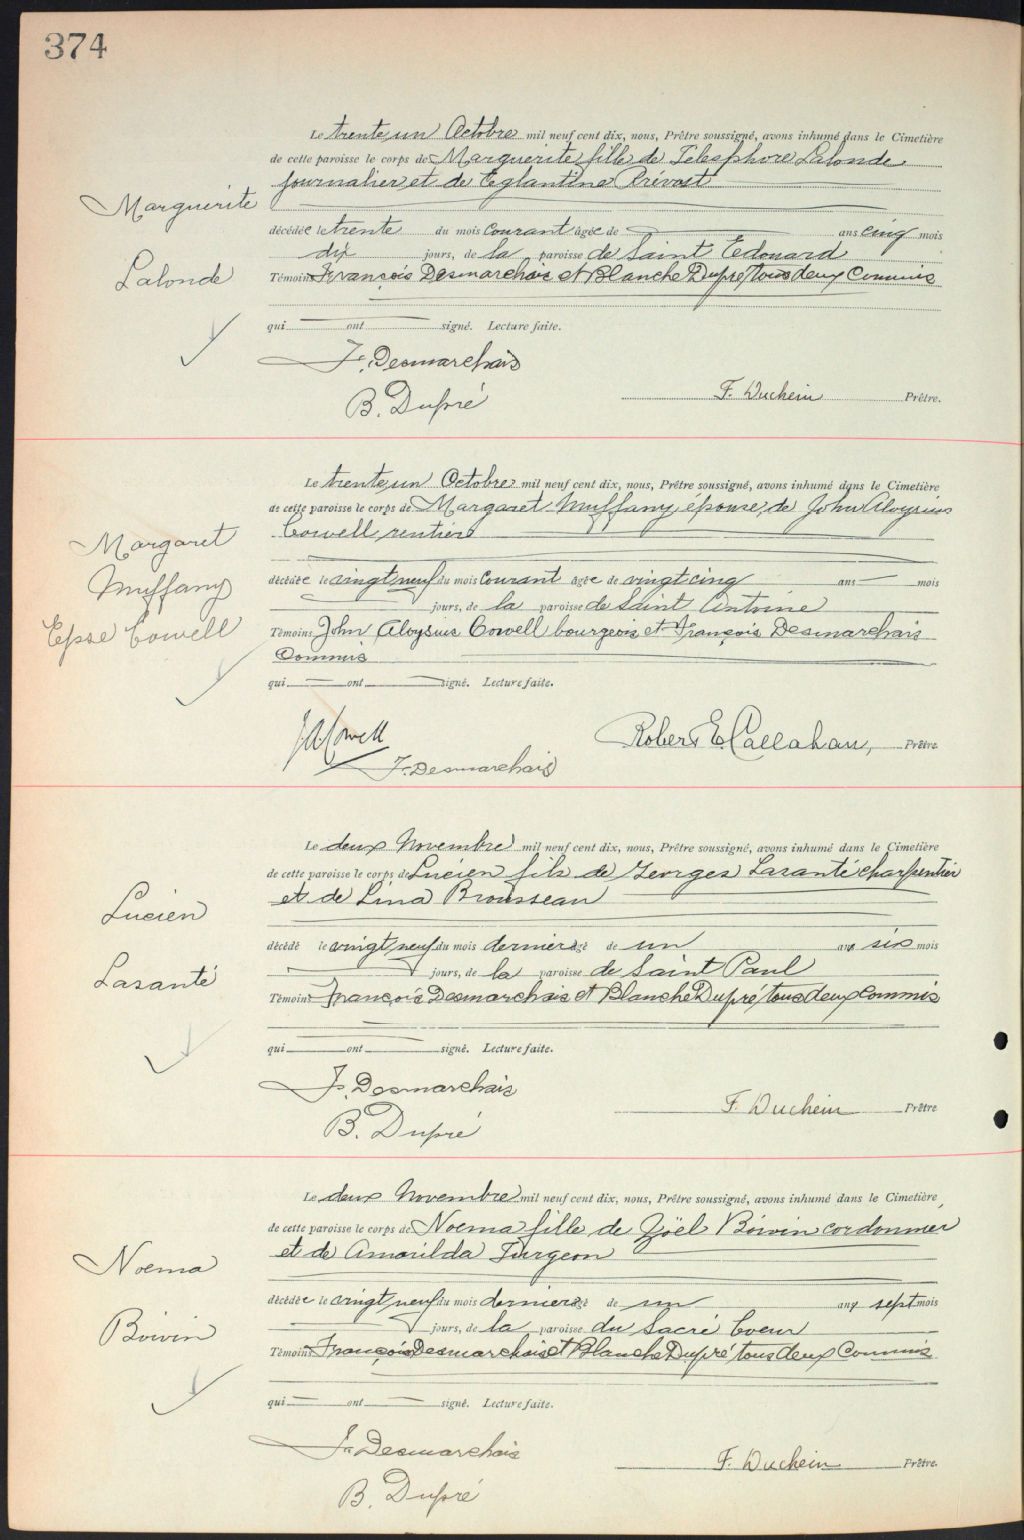 374
Le trente un Octobre mil neuf cent dix, nous, Prêtre soussigné, avons inhumé dans le Cimetière
de cette paroisse le corps de Marguerite fille de Telesphore Lalonde
journalier et de Eglantine Prévost
Marguerite
décédée le trente du mois courant âgée de ans cinq mois
dix jours, de la paroisse de Saint Edouard
Lalonde
Témoins François Desmarchais et Blanche Dupré tous deux Commis
qui ont signé. Lecture faite.
F. Desmarchais
B. Dupré
F. Duchein Prêtre.
Le trente un Octobre mil neuf cent dix, nous, Prêtre soussigné, avons inhumé dans le Cimetière
de cette paroisse le corps de Margaret Muffany épouse de John Aloysius
Cowell rentier
Margaret
Muffany
Epse Cowell
décédée le vingt neuf du mois courant âgée de vingt cinq ans mois
jours, de la paroisse de Saint Antoine
Témoins John Aloysius Cowell bourgeois et François Desmarchais
Commis
qui ont signé. Lecture faite.
J.A. Cowell
Robert E. Callahan, Prêtre
F. Desmarchais
Le deux Novembre mil neuf cent dix, nous, Prêtre soussigné, avons inhumé dans le Cimetière
de cette paroisse le corps de Lucien fils de Georges Lasanté charpentier
et de Lina Brousseau
Lucien
décédé le vingt neuf du mois dernier âgé de un ans six mois
jours, de la paroisse de Saint Paul
Lasanté
Témoins François Desmarchais et Blanche Dupré tous deux Commis
qui ont signé. Lecture faite.
F. Desmarchais
F. Duchein Prêtre
B. Dupré
Le deux Novembre mil neuf cent dix, nous, Prêtre soussigné, avons inhumé dans le Cimetière
de cette paroisse le corps de Noema fille de Joël Boivin cordonnier
et de Amarilda Turgeon
Noema
décédée le vingt neuf du mois dernier âgé de un ans sept mois
jours, de la paroisse du Sacré Coeur
Boivin
Témoins François Desmarchais et Blanche Dupré tous deux Commis
qui ont signé. Lecture faite.
F. Desmarchais
F. Duchein Prêtre.
B. Dupré